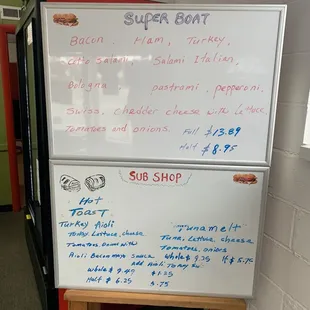 SUPER BOAT
Bacon, Ham, Turkey,
Otto Salami, Salami Italian,
Bologna, pastrami, pepperoni,
Swiss, Chedder cheese with Lettuce
Tomatoes and onions. Full $13.89
Half $8.95
SUB SHOP
Hot
TOAST
Turkey Aioli
Turkey, Lettuce, cheese
Tomatoes, Onions with
Aioli Bacon mayo Sauce
Whole $9.40
Half $6.25
add Aioli Turkey
$1.25
$.75
Tuna melt
Tuna, Lettuce, cheese
Tomatoes, onions
Whole $9.25 Hf $5.75